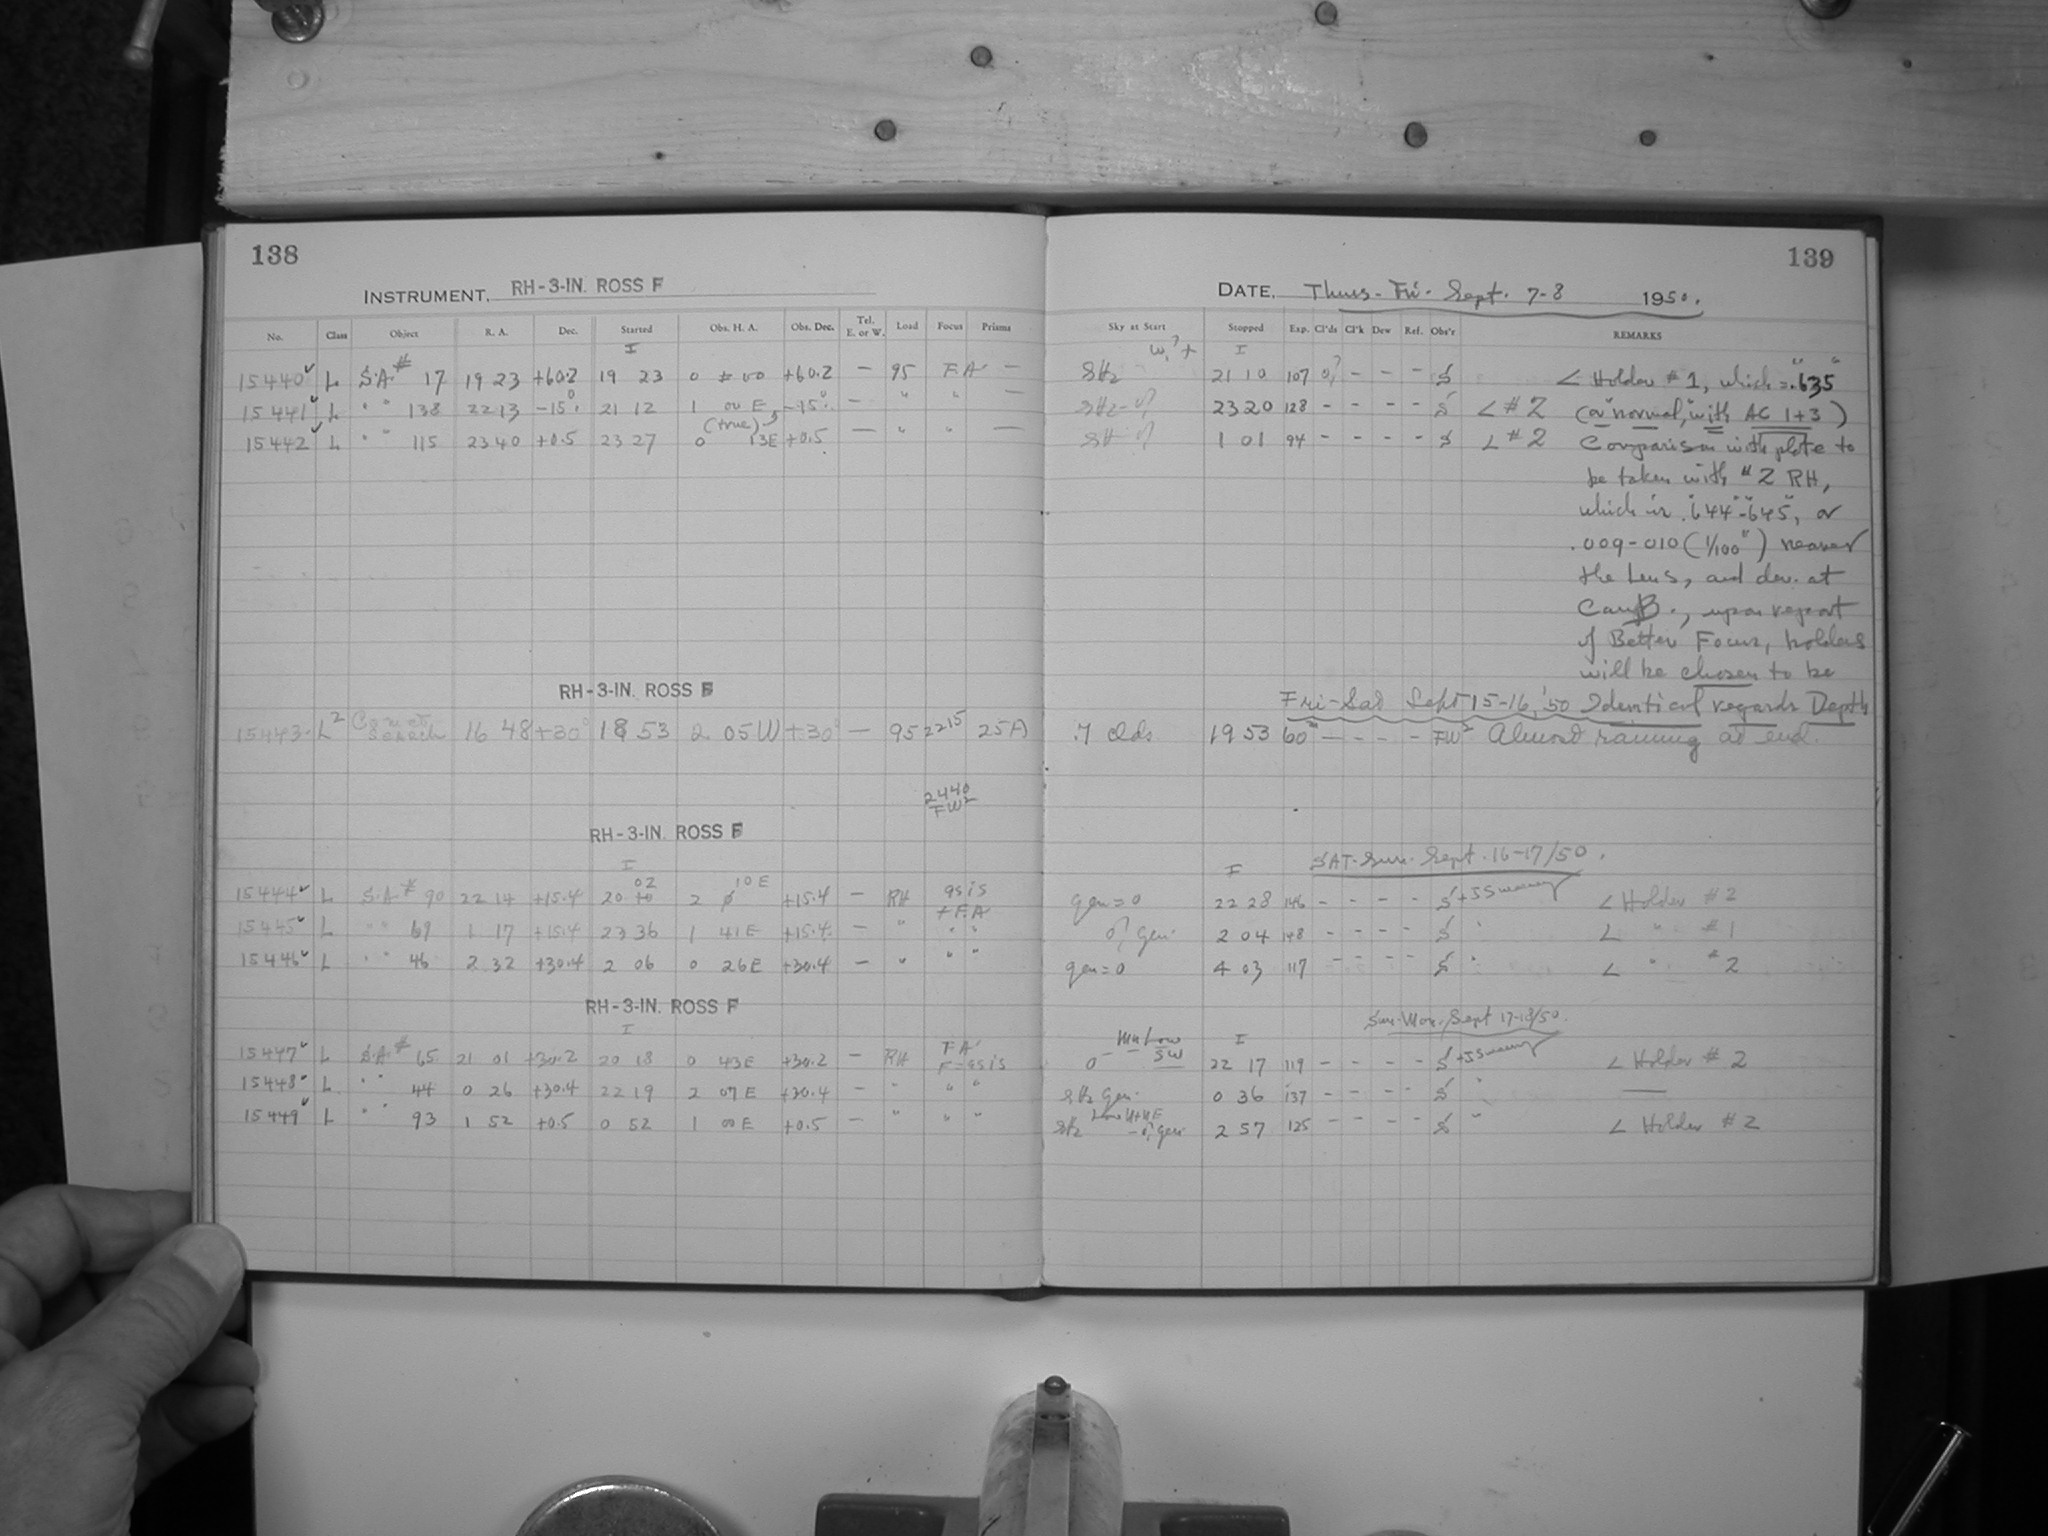 138
INSTRUMENT, RH-3-IN. ROSS F
No. Class Object R. A. Dec. Started Obs. H. A. Obs. Dec. Tel. E. or W. Load Focus Prisms
I
15440 L S.A.# 17 19 23 +60.2 19 23 0 00 +60.2 — 95 FA —
15441 L " " 138 22 13 -15° 21 12 1 00 E -15° — " " —
(true)
15442 L " " 115 23 40 +0.5 23 27 0 13E +0.5 — " " —
RH-3-IN. ROSS F
15443 L² Comet Search 16 48 +30° 18 53 2 05 W +30° — 95 2215 25A
2440
FW²
RH-3-IN. ROSS F
I
15444 L S.A.# 90 22 14 +15.4 20 02 2 10 E +15.4 — RH as is + FA
15445 L " " 69 1 17 +15.4 23 36 1 41E +15.4 — " " "
15446 L " " 46 2 32 +30.4 2 06 0 26E +30.4 — " " "
RH-3-IN. ROSS F
I
15447 L S.A.# 65 21 01 +30.2 20 18 0 43E +30.2 — RH FA F=as is
15448 L " " 44 0 26 +30.4 22 19 2 07 E +30.4 — " " "
15449 L " " 93 1 52 +0.5 0 52 1 00 E +0.5 — " " "
139
DATE, Thurs-Fri- Sept. 7-8 1950.
Sky at Start Stopped Exp. Cl'ds Cl'k Dew Ref. Obs'r REMARKS
I
21 10 107 - - - S < Holder #1, which = ".635"
23 20 128 - - - - S < #2 (or "normal," with AC 1+3)
1 01 94 - - - - S < #2 Comparison with plate to
be taken with #2 RH,
which is .644"-645", or
.009-010 (1/100") nearer
the Lens, and dev. at
Camb., upon report
of Better Focus, holders
will be chosen to be
Fri-Sat Sept 15-16, '50 Identical regards Depth
.7 Clds 19 53 60 - - - - FW² Almost raining at end.
I SAT-Sun- Sept. 16-17/50.
gen=0 22 28 146 - - - - S + < Holder #2
gen. 2 04 148 - - - - S " < " #1
gen=0 4 03 117 - - - - S " < " #2
Sun-Mon, Sept 17-18/50.
Low SW I
0 22 17 119 - - - - S + < Holder #2
gen. 0 36 137 - - - - S " —
Low N+NE
gen 2 57 125 - - - - S " < Holder #2